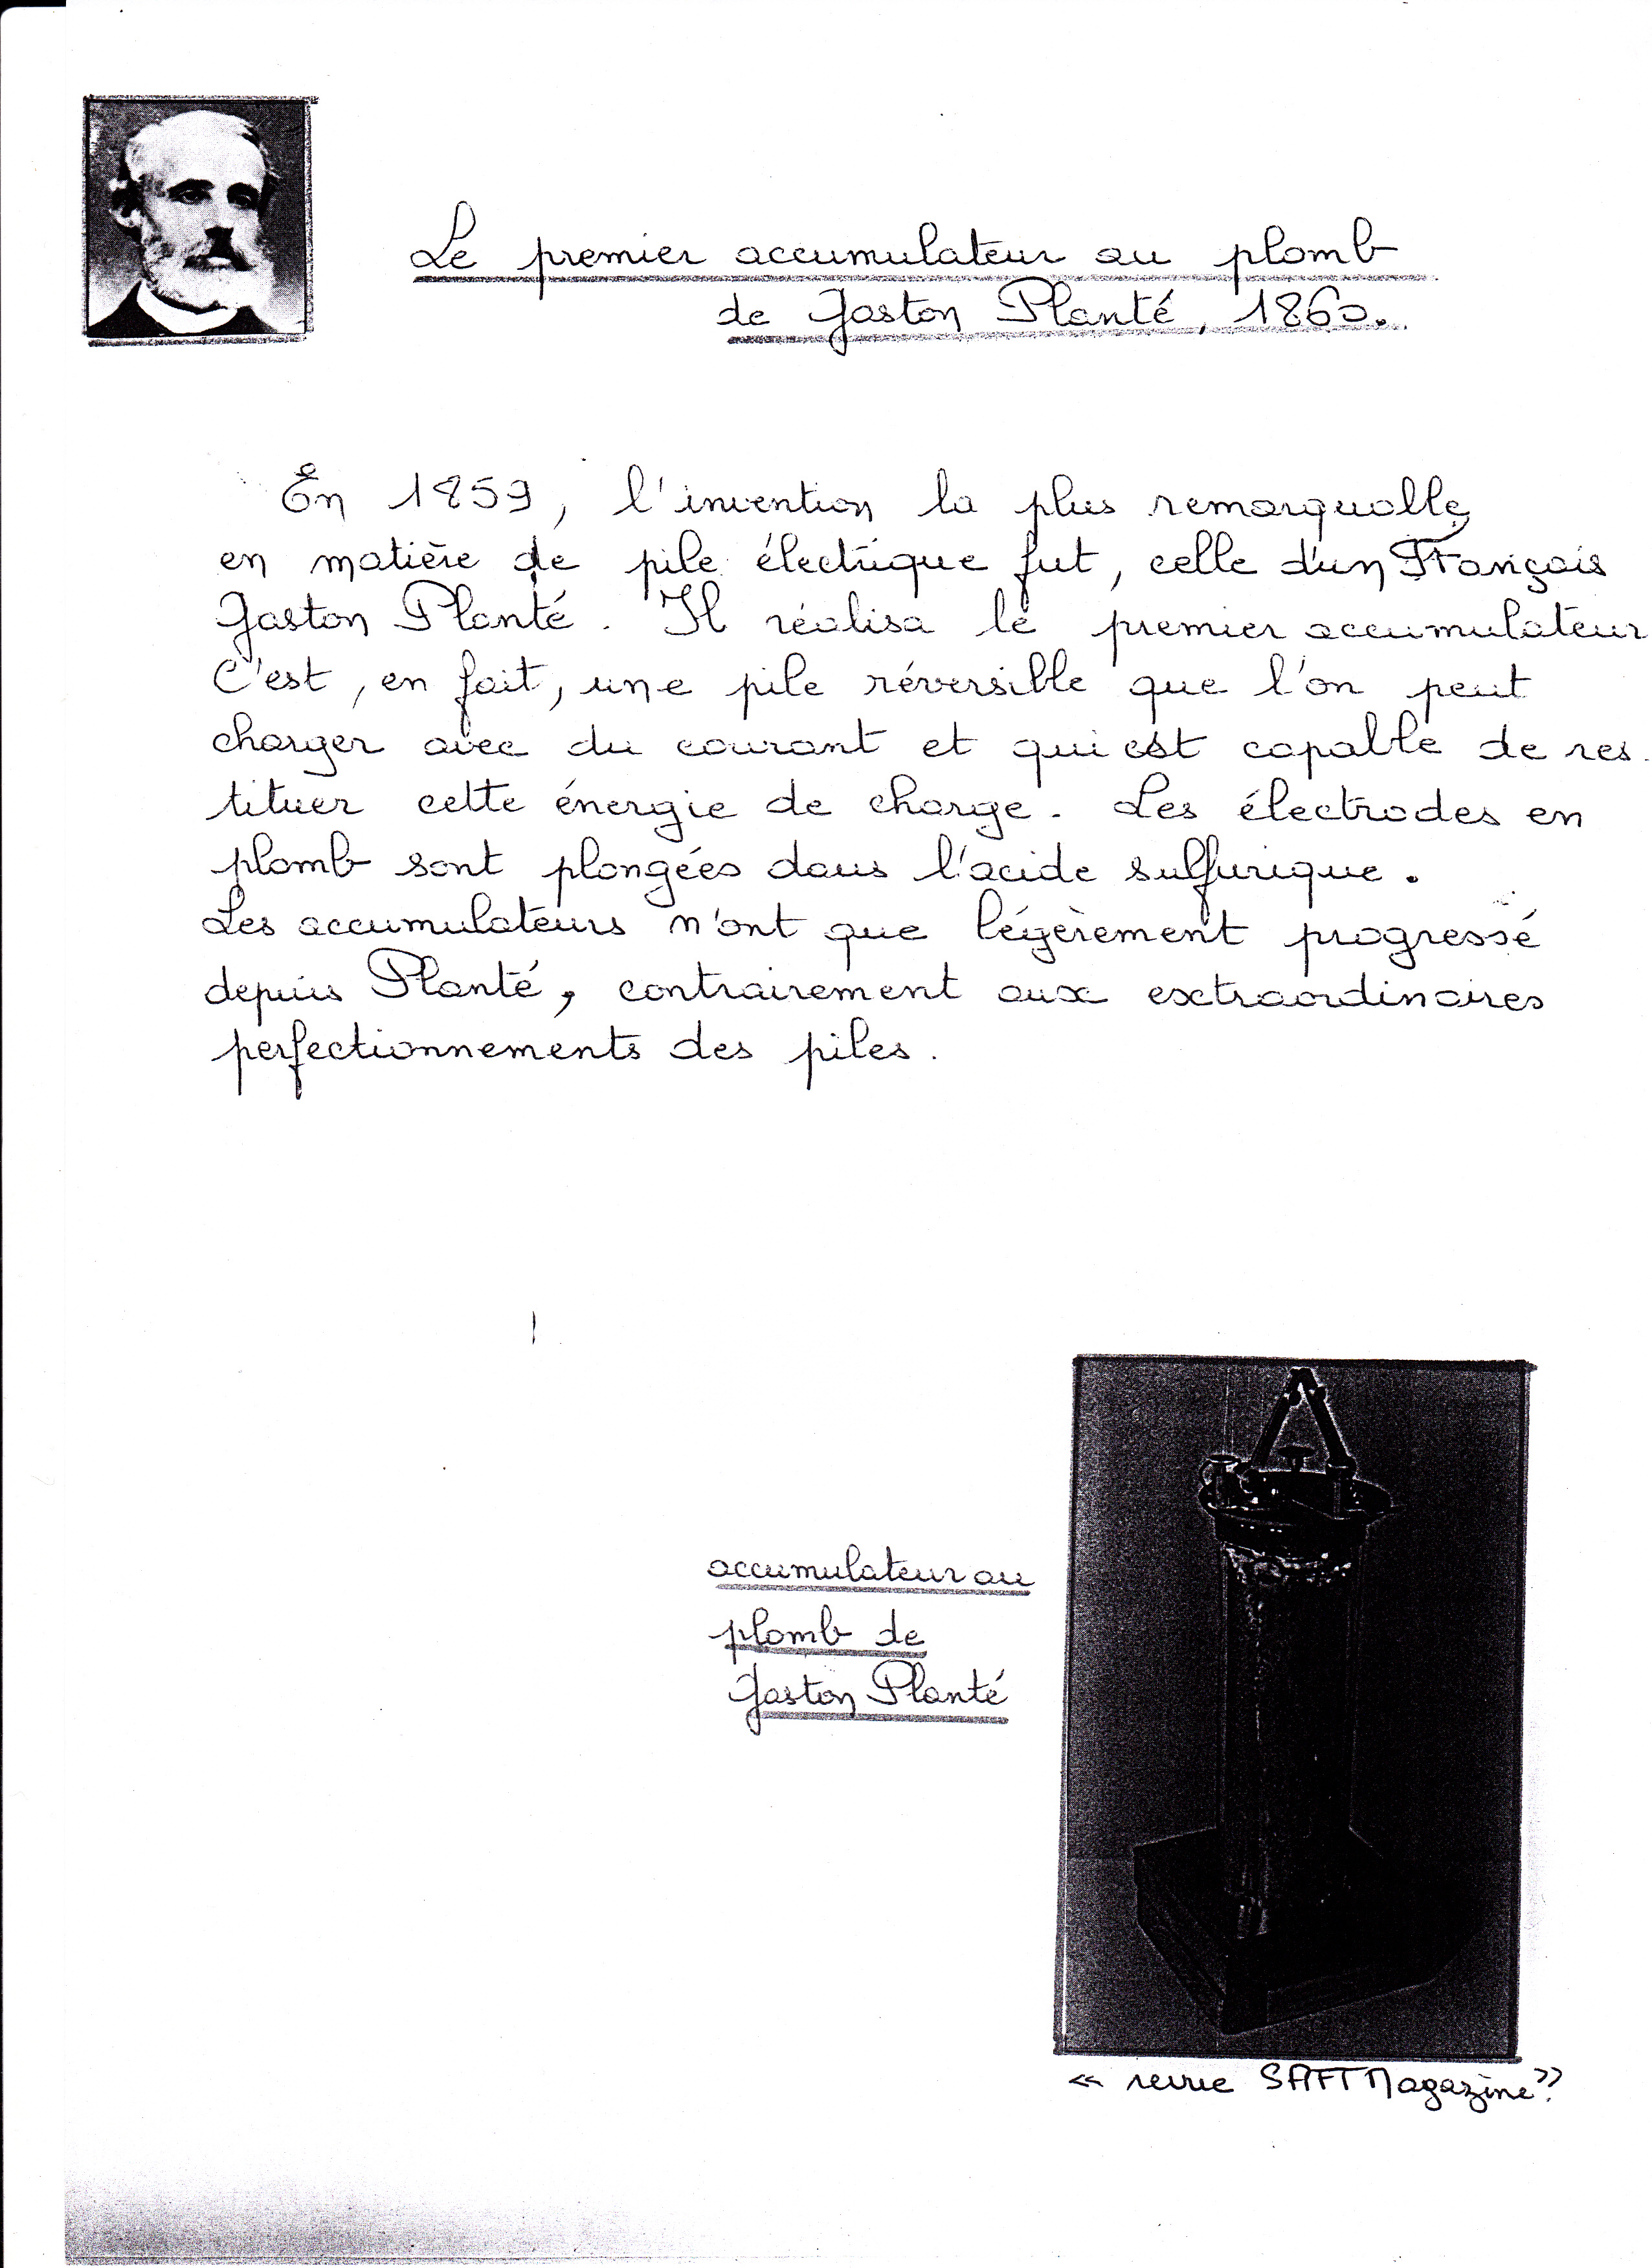 Le premier accumulateur au plomb
de Gaston Planté, 1860.
En 1859, l'invention la plus remarquable
en matière de pile électrique fut, celle d'un Français
Gaston Planté. Il réalisa le premier accumulateur
C'est, en fait, une pile réversible que l'on peut
charger avec du courant et qui est capable de res-
tituer cette énergie de charge. Les électrodes en
plomb sont plongées dans l'acide sulfurique.
Les accumulateurs n'ont que légèrement progressé
depuis Planté, contrairement aux extraordinaires
perfectionnements des piles.
accumulateur au
plomb de
Gaston Planté
« revue SAFT Magazine »